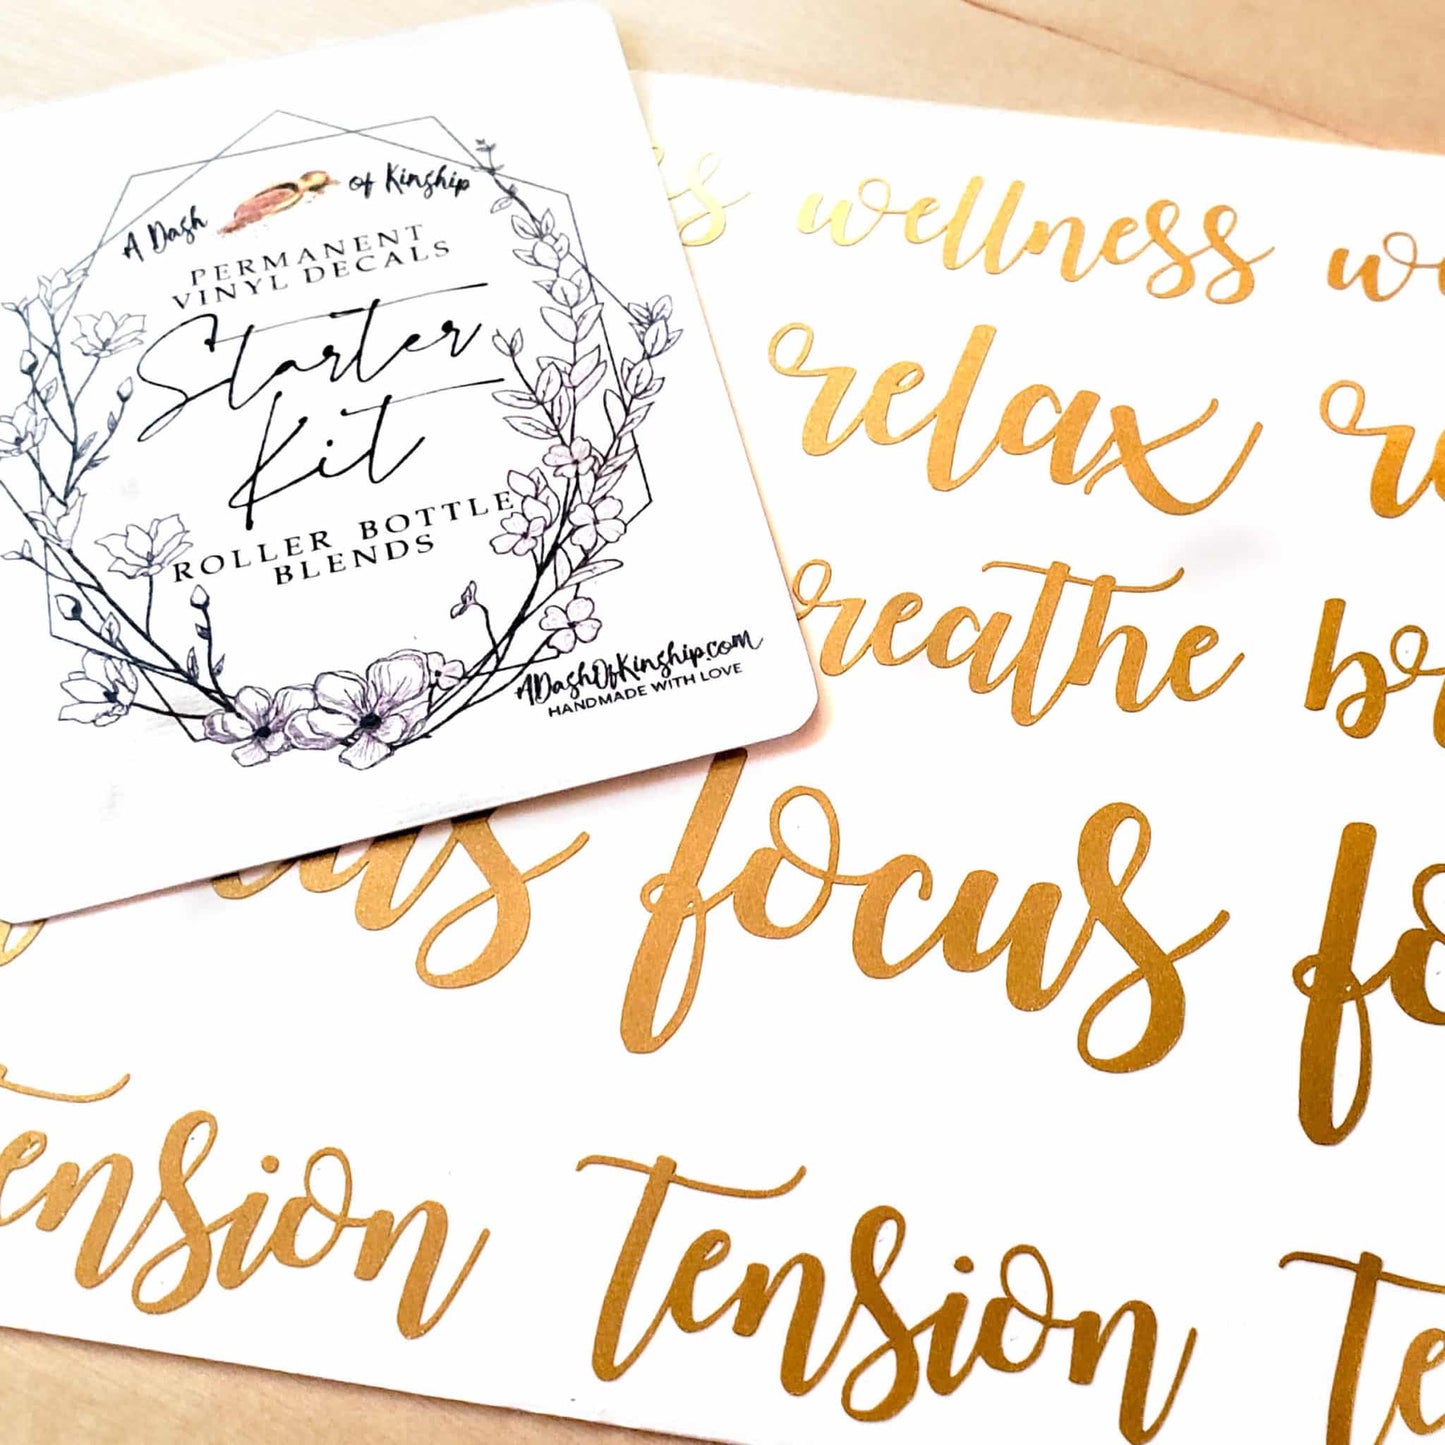 A Dash of Kinship
PERMANENT
VINYL DECALS
Starter
Kit
ROLLER BOTTLE
BLENDS
ADashOfKinship.com
HANDMADE WITH LOVE
wellness
relax
breathe
focus
tension tension